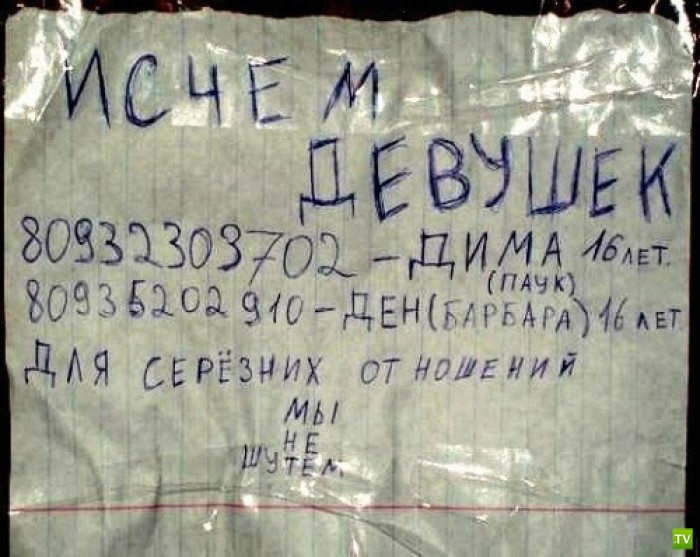 ИСЧЕМ
ДЕВУШЕК
80932309702 - ДИМА 16 ЛЕТ.
(ПАУК)
80935202910 - ДЕН (БАРБАРА) 16 ЛЕТ
ДЛЯ СЕРЁЗНИХ ОТНОШЕНИЙ
МЫ
НЕ
ШУТЕМ.
.TV